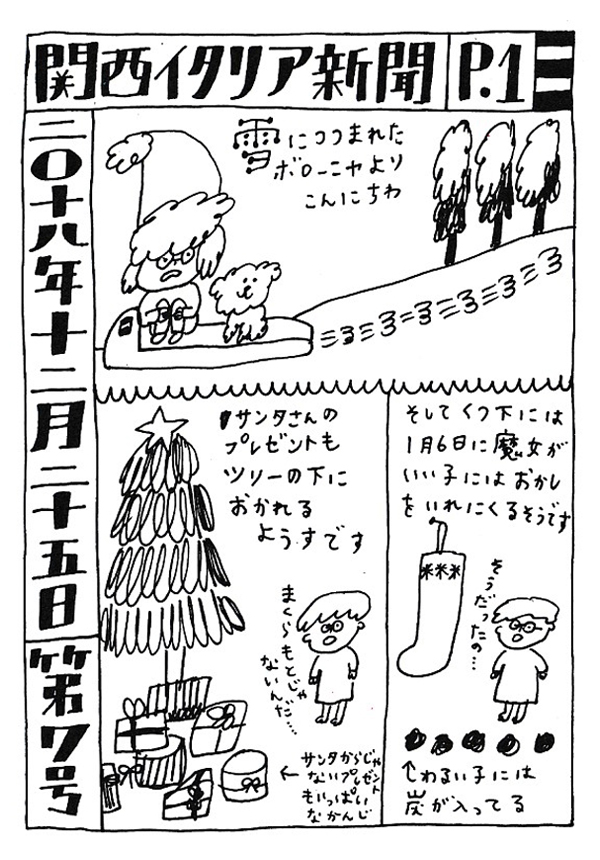 関西イタリア新聞
P.1
二〇十八年十二月二十五日
第7号
雪につつまれた
ボローニャより
こんにちわ
サンタさんの
プレゼントも
ツリーの下に
おかれる
ようすです
まくらもとじゃ
ないんだ…
←サンタからじゃ
ないプレゼント
もいっぱい
なかんじ
そしてくつ下には
1月6日に魔女が
いい子にはおかし
をいれにくるそうです
そうだったの…
↑わるい子には
炭が入ってる